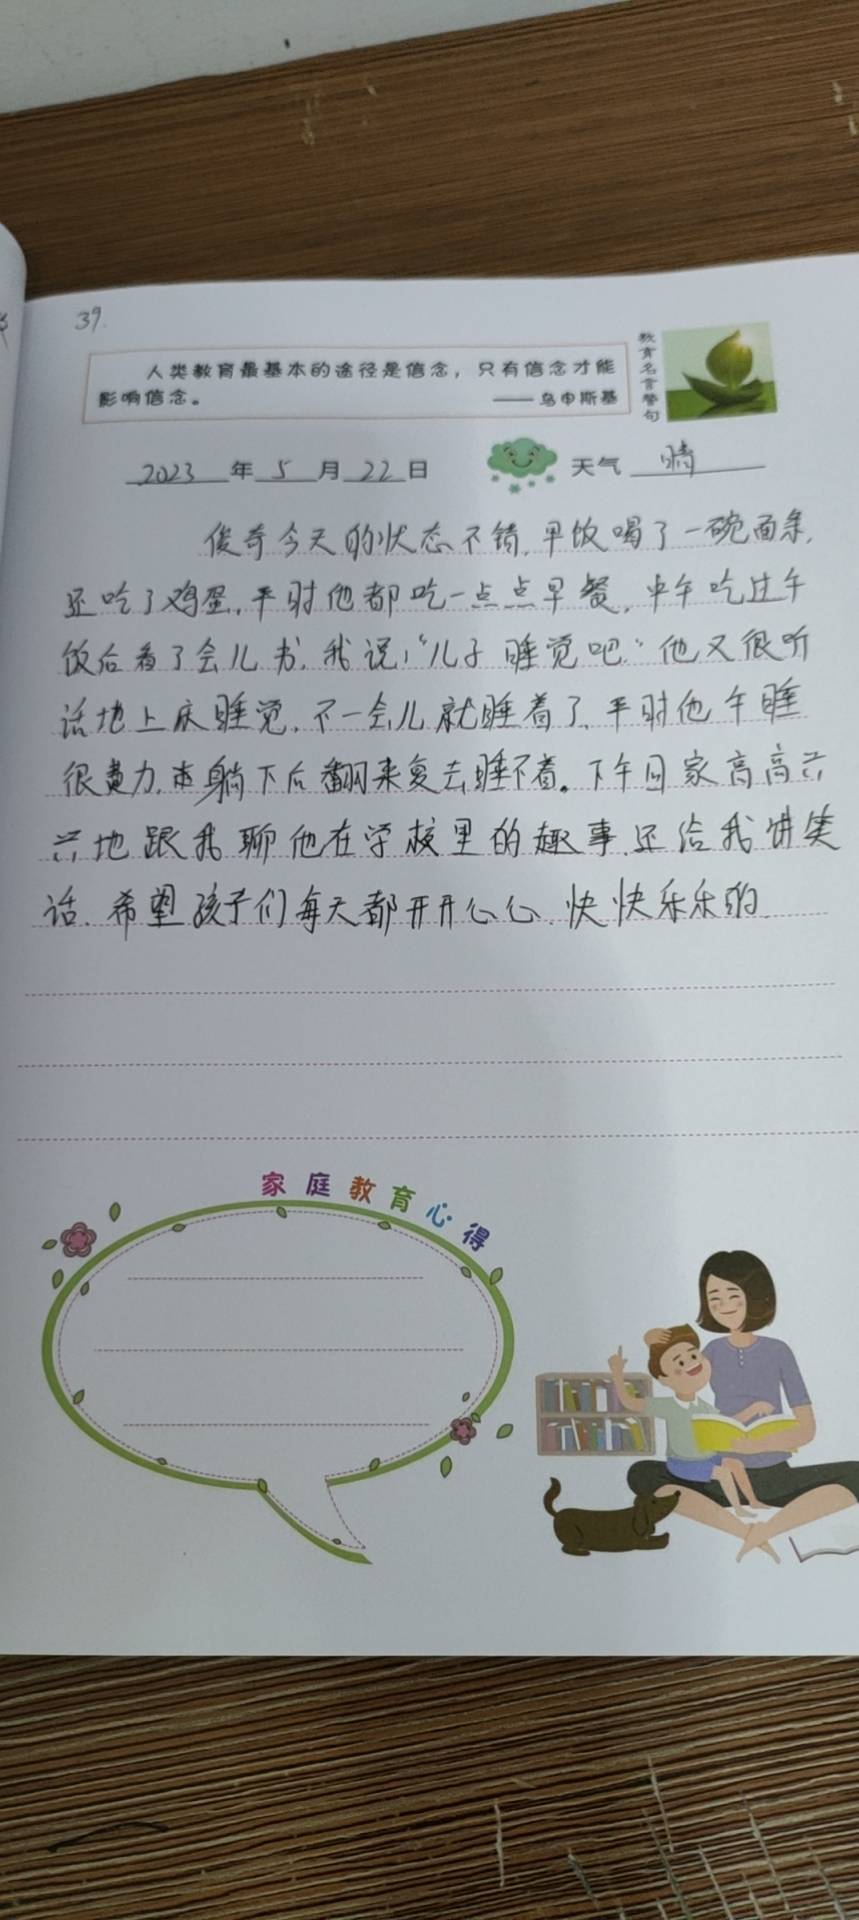 39.
人类教育最基本的途径是信念，只有信念才能
影响信念。
——乌申斯基
教育名言警句
2023年5月22日 天气 晴
俊奇今天的状态不错，早饭喝了一碗面条，
还吃了鸡蛋，平时他都吃一点点早餐，中午吃过午
饭后看了会儿书，我说，“儿子睡觉吧。”他又很听
话地上床睡觉，不一会儿就睡着了，平时他午睡
很费力，躺下后翻来复去睡不着。下午回家高高兴
兴地跟我聊他在学校里的趣事，还给我讲笑
话，希望孩子们每天都开开心心，快快乐乐的
家庭教育心得